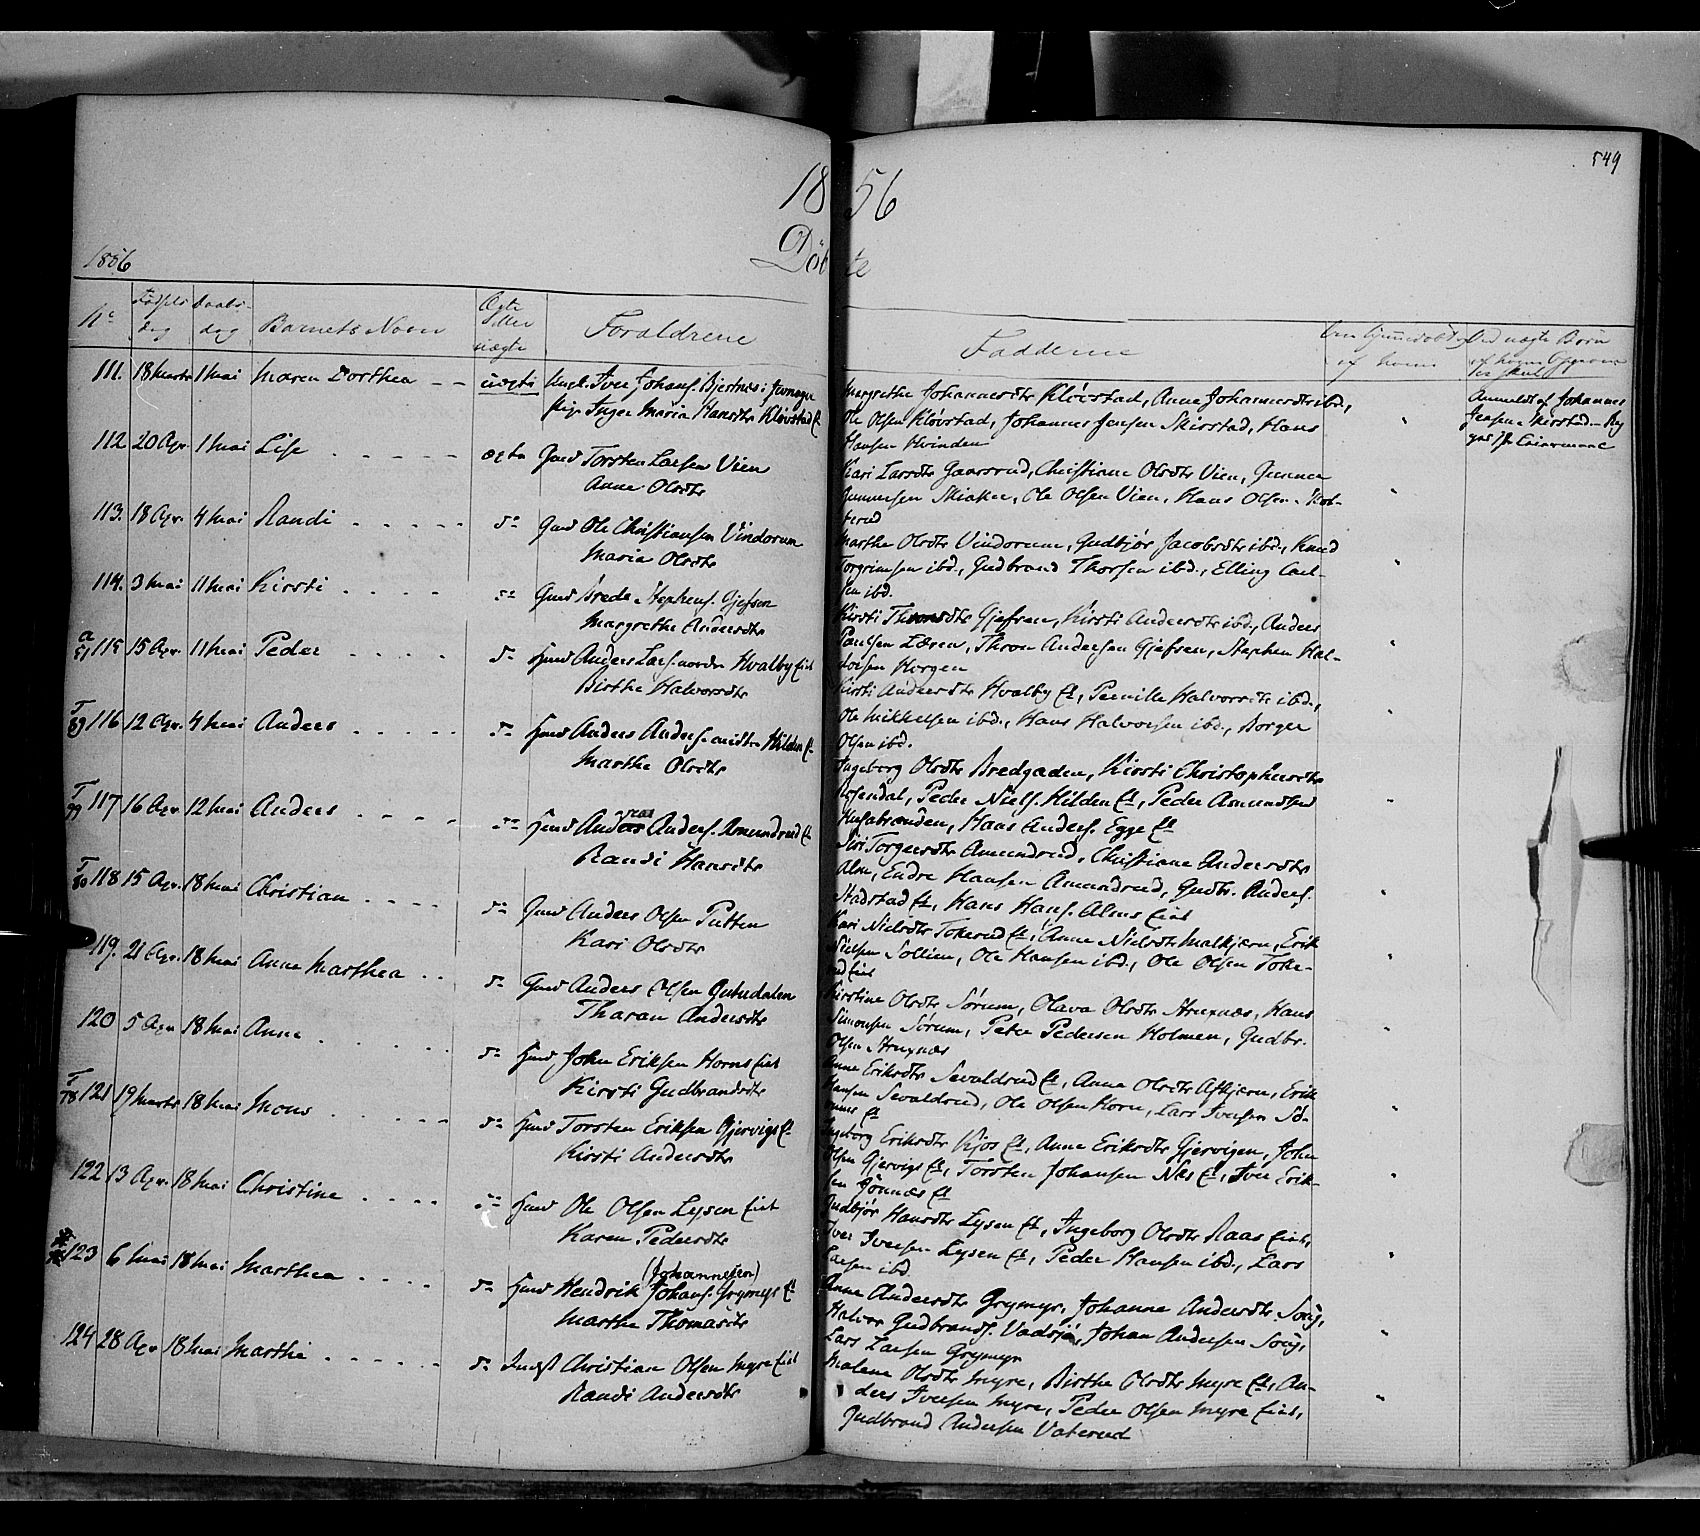 549
18 56
Döb te
1856
No Födsels dag Daabs- dag Barnets Navn Ægte eller uægte Foraldrene Fadderne
111. 18 Marts 1 Mai Maren Dorthea – – uægte Ungk. Iver Johans. Bjertnes i Jevnager
Pige Inger Maria Hansdtr Klövstad
Margrethe Johannesdtr Klövstad, Anne Johannesdtr ibd.,
Ole Olsen Klövstad, Johannes Jensen Skirstad, Hans
Hansen Hvinden
Anmeldt af Johannes
Jensen Skirstad
112. 20 Apr. 1 Mai Lise . . . . . ægte Gmd Torsten Larsen Vien
Anne Olsdtr
Kari Larsdtr Gaarsrud, Christiane Olsdtr Vien, Gunner
Gunnersen Skiaker, Ole Olsen Vien, Hans Olsen
113. 18 Apr. 4 Mai Randi . . . . . do Gmd Ole Christiansen Vindorum
Maria Olsdtr
Marthe Olsdtr Vindorum, Gudbjör Jacobsdtr ibd., Knud
Torgrimsen ibd., Gudbrand Thorsen ibd., Elling Carl-
sen ibd.
114. 3 Mai 11 Mai Kirsti . . . . do Gmd Brede Stephens. Gjefsen
Margrethe Andersdtr
Kirsti Thronsdtr Gjefsen, Kirsti Andersdtr ibd., Anders
Paulsen Læren, Thron Andersen Gjefsen, Stephen Hal-
vorsen Horgen
115 15 Apr. 11 Mai Peder . . . . do Hmd Anders Lars. nordre Hvalby Eiet
Birthe Halvorsdtr
Kirsti Andersdtr Hvalby Et, Pernille Halvorsdtr ibd.,
Ole Mikkelsen ibd., Hans Halvorsen ibd., Borger
Olsen ibd.
116 12 Apr. 4 Mai Anders . . . . . do Hmd Anders Anders. midtre Hilden Et
Marthe Olsdtr
Ingeborg Olsdtr Bredgaden, Kirsti Christophersdtr
Rosendal, Peder Niels. Hilden Et, Peder Amundsen
Husabranden, Hans Anders. Egge Et
117 16 Apr. 12 Mai Anders . . . . do Hmd Andreas Anders. Amundrud Et
Randi Hansdtr
Siri Torgersdtr Amundrud, Christiane Andersdtr
Alm, Endre Hansen Amundrud, Gudbr. Anders.
Stadstad Et, Hans Hans. Alms Eiet
118 15 Apr. 18 Mai Christian . . . . do Gmd Anders Olsen Putten
Kari Olsdtr
Kari Nielsdtr Tokerud Et, Anne Nielsdtr Malkjern, Erik
Nielsen Sollien, Ole Hansen ibd., Ole Olsen Toke-
rud Eiet
119. 21 Apr. 18 Mai Anne Marthea . . do Gmd Anders Olsen Gutudalen
Tharan Andersdtr
Kirstine Olsdtr Sörum, Olava Olsdtr Struxnæs, Hans
Simonsen Sörum, Peter Pedersen Holmen, Gudbr.
Olsen Struxnæs
120 5 Apr 18 Mai Anne . . . . . do Hmd John Eriksen Horns Eiet
Kirsti Gudbrandsdtr
Anne Eriksdtr Sevaldrud Et, Anne Olsdtr Askjern, Erik
Hansen Sevaldrud, Ole Olsen Horn, Lars Iversen
121 19 Marts 18 Mai Mons . . . . . do Hmd Torsten Eriksen Gjervigs Et
Kirsti Andersdtr
Ingeborg Eriksdtr Kjos Et, Anne Eriksdtr Gjervigen, John
Olsen Gjervigs Et, Torsten Johansen Næs Et, Iver Erik-
sen Jönnæs Et
122 13 Apr. 18 Mai Christine . . . . do Hmd Ole Olsen Lysen Eiet
Karen Pedersdtr
Gudbjör Hansdtr Lysen Et, Ingeborg Olsdtr Raas Eiet,
Iver Iversen Lysen Et, Peder Hansen ibd., Lars
Larsen ibd.
123 6 Mai 18 Mai Marthea . . . . do Hmd Hendrik Johans. (Johannesen) Grymyr Et
Marthe Thomasdtr
Anne Andersdtr Grymyr, Johanne Andersdtr Soug,
Halvor Gudbrands. Vadsjö, Johan Andersen Soug,
Lars Larsen Grymyr
124 28 Apr 18 Mai Marthe . . . . . do Indst Christian Olsen Myre Eiet
Randi Andersdtr
Malene Olsdtr Myre, Birthe Olsdtr Myre Et, An-
ders Iversen Myre, Peder Olsen Myre Eiet,
Gudbrand Andersen Vaterud